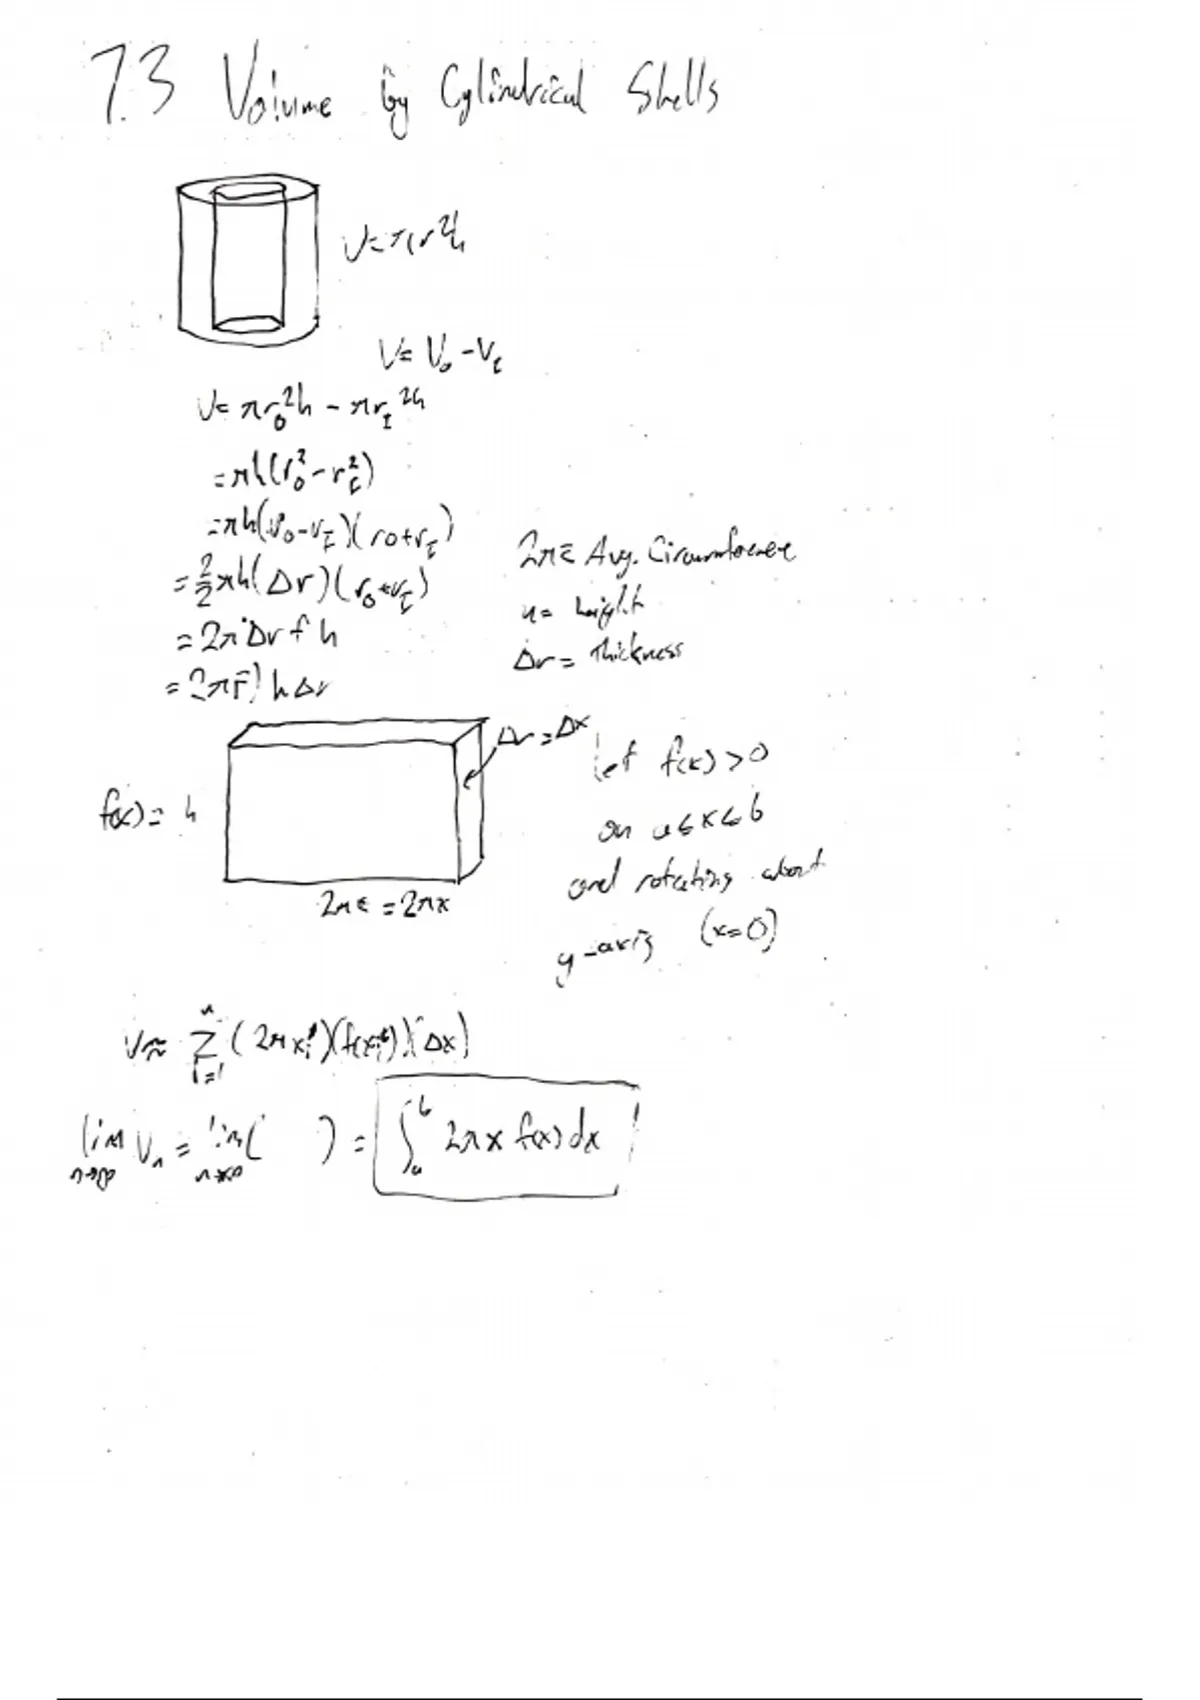 7.3 Volume by Cylindrical Shells
V=πr²h
V= V₀ -V_I
V= πr₀²h - πr_I²h
=πh(r₀²-r_I²)
=πh(r₀-r_I)(r₀+r_I)
=2/2πh(Δr)(r₀+r_I)
=2π·Δr r̄ h
=(2πr̄) hΔr
2πr̄ Avg. Circumference
h= height
Δr= Thickness
Δr=Δx
f(x)= h
2πr̄ =2πx
Let f(x)>0
on a≤x≤b
and rotating about
y-axis (x=0)
V≈ Σ_{i=1}^{n} (2πx_i*)(f(x_i*))(Δx)
lim_{n→∞} V_n = lim_{n→∞}( ) = ∫_a^b 2πx f(x) dx